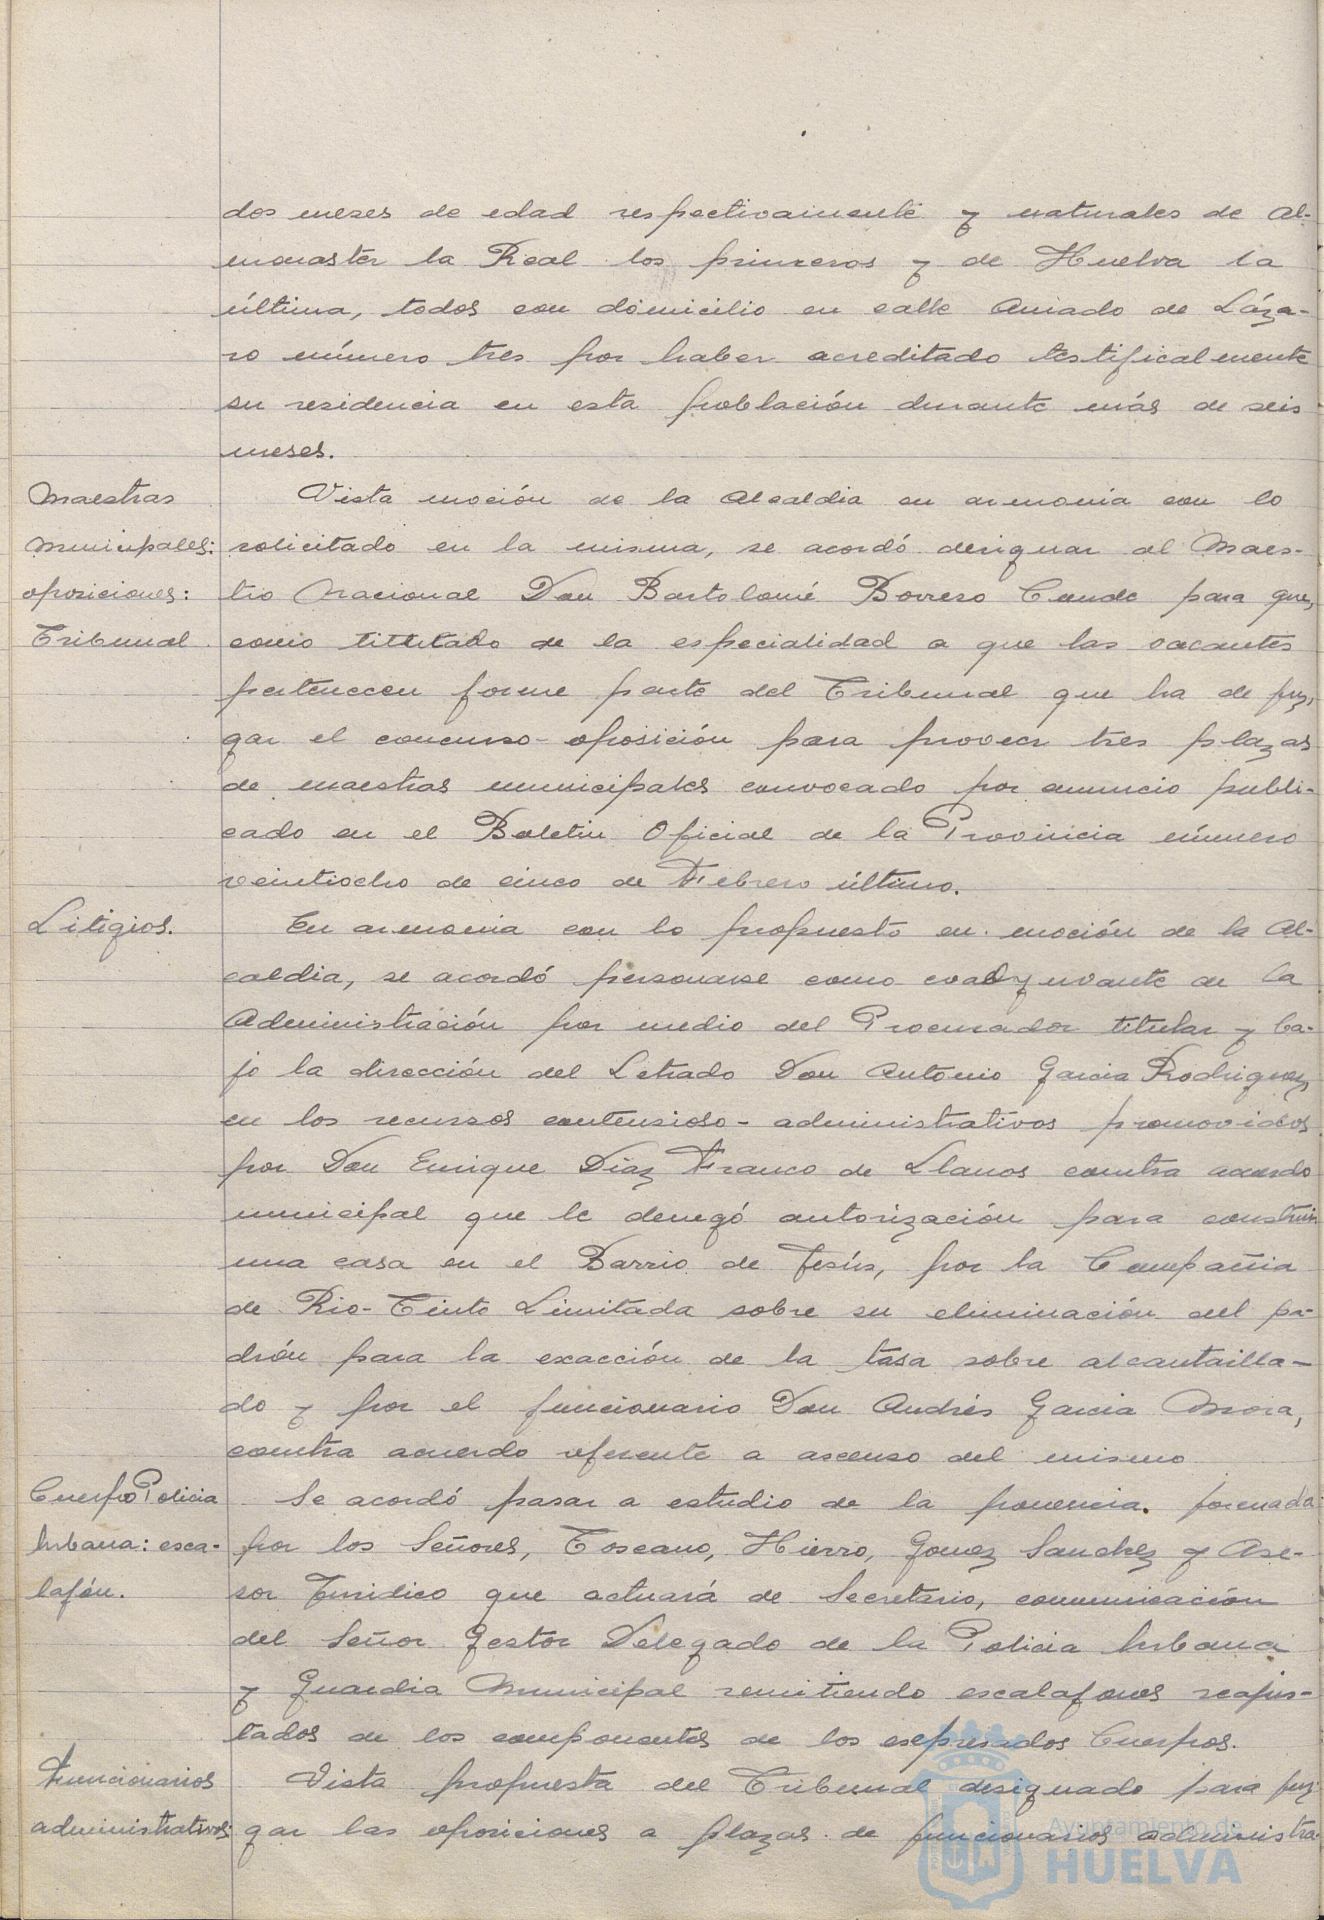 dos meses de edad respectivamente y naturales de Al-
monaster la Real los primeros y de Huelva la
última, todos con domicilio en calle Amado de Láza-
ro número tres por haber acreditado testificalmente
su residencia en esta población durante más de seis
meses.
Maestras
Municipales:
oposiciones:
Tribunal.
Vista moción de la Alcaldia en armonia con lo
solicitado en la misma, se acordó designar al Maes-
tro Nacional Don Bartolomé Borrero Conde para que,
como titulado de la especialidad a que las vacantes
pertenecen forme parte del Tribunal que ha de juz-
gar el concurso-oposición para proveer tres plazas
de maestras municipales convocado por anuncio publi-
cado en el Boletin Oficial de la Provincia número
veintiocho de cinco de Febrero último.
Litigios.
En armonia con lo propuesto en moción de la Al-
caldia, se acordó personarse como coadyuvante de la
Administración por medio del Procurador titular y ba-
jo la dirección del Letrado Don Antonio Garcia Rodriguez
en los recursos contensioso-administrativos promovidos
por Don Enrique Diaz Franco de Llanos contra acuerdo
municipal que le denegó autorización para construir
una casa en el Barrio de Jesús, por la Compañia
de Rio-Tinto Limitada sobre su eliminación del pa-
drón para la exacción de la tasa sobre alcantailla-
do y por el funcionario Don Andrés Garcia Mora,
contra acuerdo referente a ascenso del mismo
Cuerpo Policia
Urbana: esca-
lafón.
Se acordó pasar a estudio de la ponencia. formada
por los Señores, Toscano, Hierro, Gomez Sanchez y Ase-
sor Juridico que actuará de Secretario, comunicación
del Señor Gestor Delegado de la Policia Urbana
y Guardia Municipal remitiendo escalafones reajus-
tados de los componentes de los expresados Cuerpos.
Funcionarios
administrativos:
Vista propuesta del Tribunal designado para juz-
gar las oposiciones a plazas de funcionarios administra-
Ayuntamiento de
HUELVA